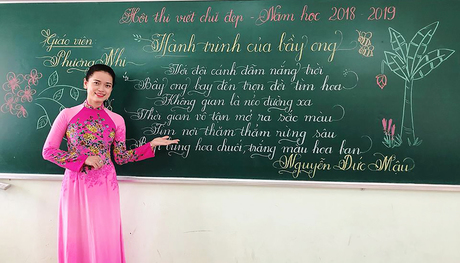 Hội thi viết chữ đẹp - Năm học 2018 - 2019
Giáo viên
Phương Nhi
Hành trình của bầy ong
Với đôi cánh đẫm nắng trời
Bầy ong bay đến trọn đời tìm hoa
Không gian là nẻo đường xa
Thời gian vô tận mở ra sắc màu
Tìm nơi thăm thẳm rừng sâu
hoa chuối, trắng màu hoa ban
Nguyễn Đức Mậu